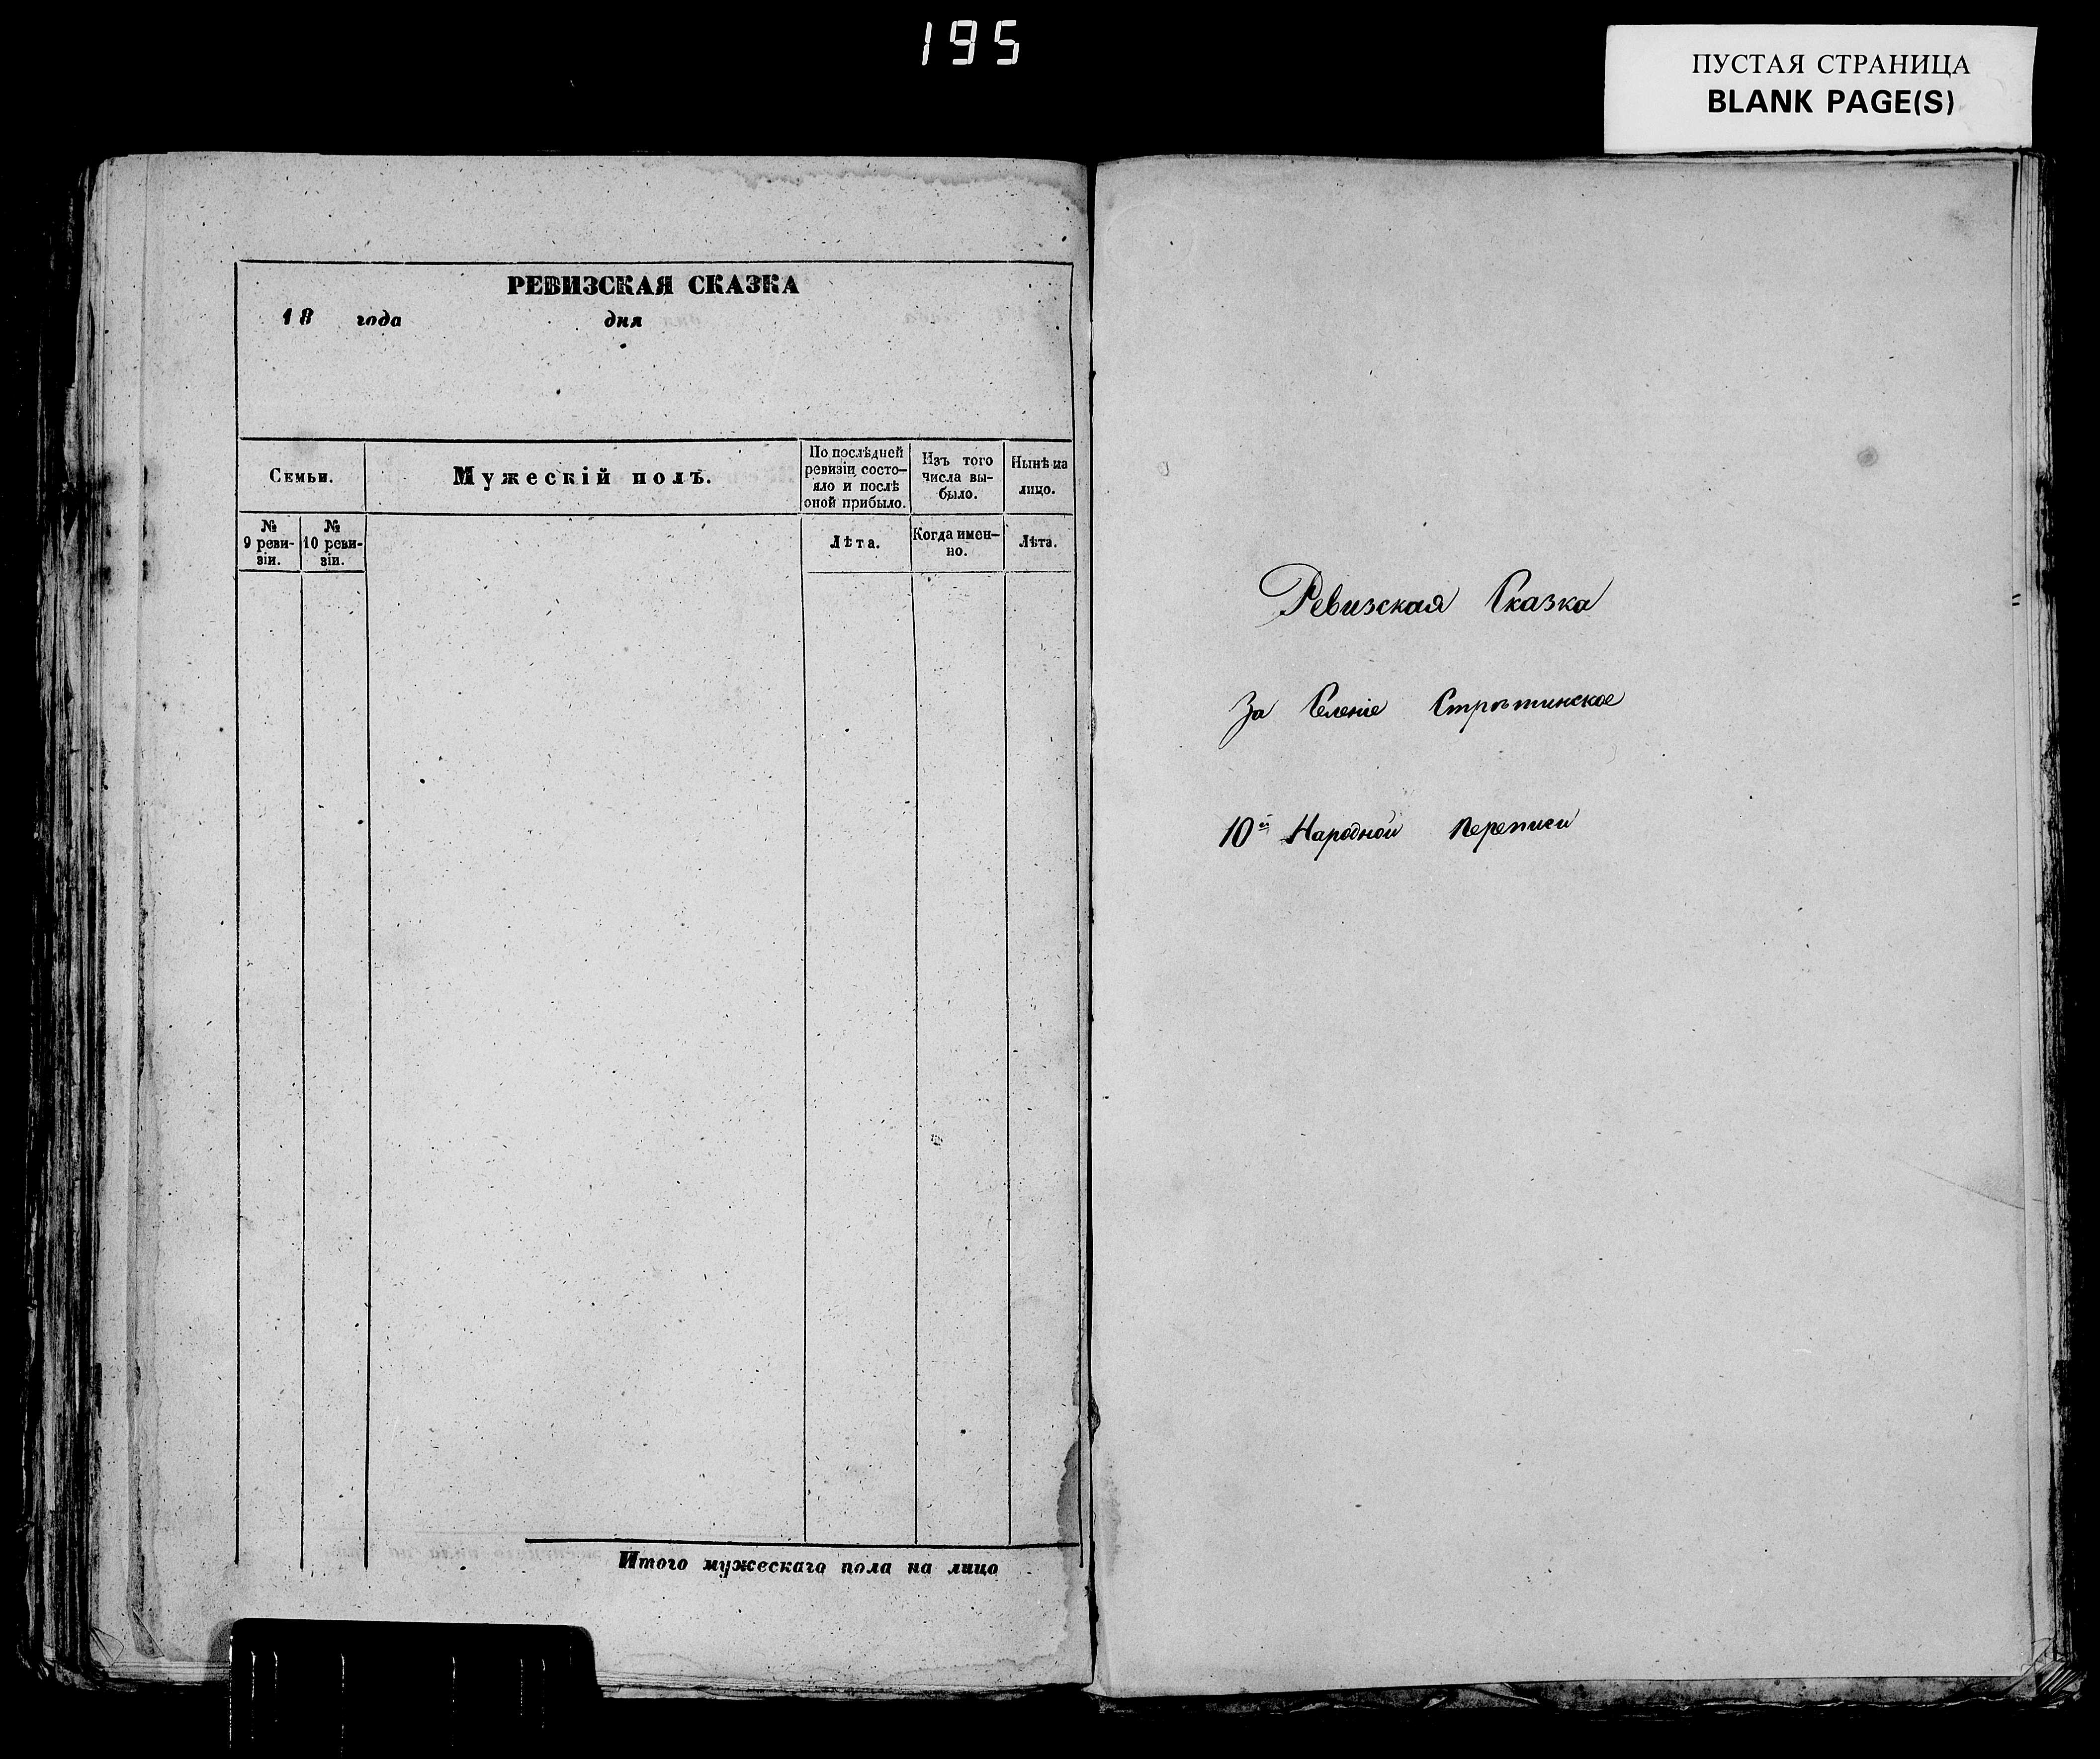 195
ПУСТАЯ СТРАНИЦА
BLANK PAGE(S)
РЕВИЗСКАЯ СКАЗКА
18 года дня
Семьи.
Мужескій полъ.
По послѣдней
ревизіи состо-
яло и послѣ
оной прибыло.
Изъ того
числа вы-
было.
Нынѣ на
лицо.
№
9 реви-
зіи.
№
10 реви-
зіи.
Лѣта.
Когда имен-
но.
Лѣта.
Итого мужескаго пола на лицо
Ревизская Сказка
За Селеніе
10й Народной переписи